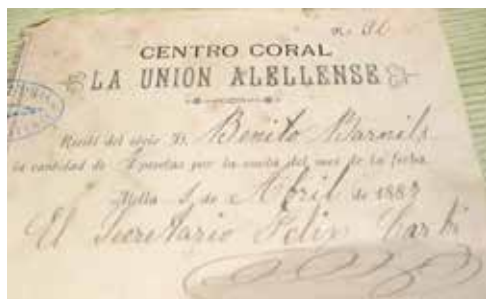 n. 30
CENTRO CORAL
LA UNION ALELLENSE
Recibí del socio D. Benito Barnils
la cantidad de 1 pesetas por la cuota del mes de la fecha.
Alella 1 de Abril de 1883
El Secretario Felix Carbó